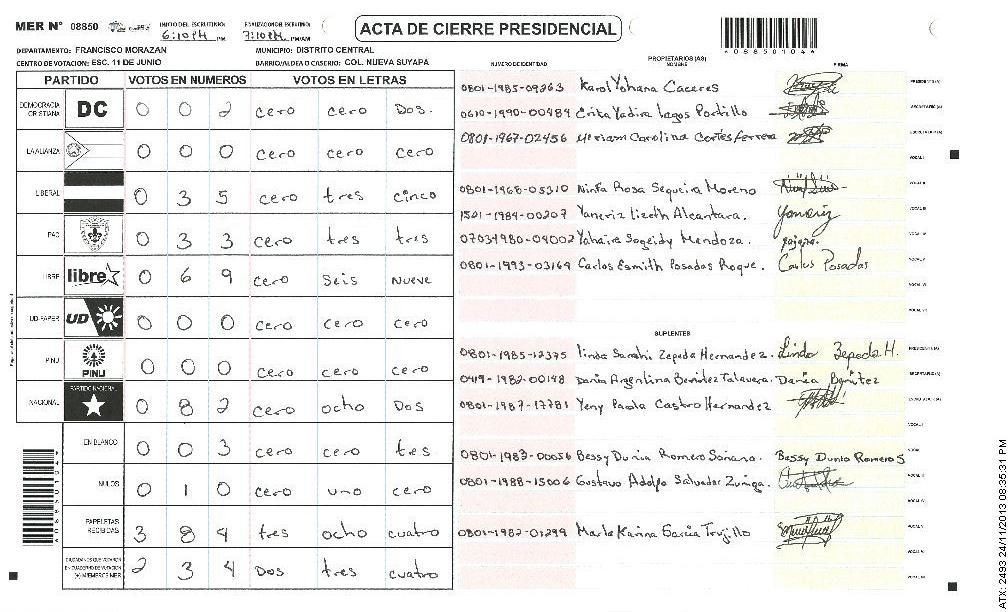 MER N° 08850 INICIO DEL ESCRUTINIO: 6:10 PM FINALIZACION DEL ESCRUTINIO: 7:10 PM PM/AM
ACTA DE CIERRE PRESIDENCIAL
DEPARTAMENTO: FRANCISCO MORAZAN MUNICIPIO: DISTRITO CENTRAL
CENTRO DE VOTACION: ESC. 11 DE JUNIO BARRIO/ALDEA O CASERIO: COL. NUEVA SUYAPA
PARTIDO VOTOS EN NUMEROS VOTOS EN LETRAS
DEMOCRACIA CRISTIANA DC 0 0 2 cero cero Dos.
LA ALIANZA 0 0 0 cero cero cero
LIBERAL 0 3 5 cero tres cinco
PAC 0 3 3 cero tres tres
LIBRE libre 0 6 9 cero Seis Nueve
UD-FAPER UD 0 0 0 cero cero cero
PINU PINU 0 0 0 cero cero cero
NACIONAL PARTIDO NACIONAL 0 8 2 cero ocho Dos
EN BLANCO 0 0 3 cero cero tres
NULOS 0 1 0 cero uno cero
PAPELETAS RECIBIDAS 3 8 4 tres ocho cuatro
CIUDADANOS QUE VOTARON EN CUADERNO DE VOTACION (+) MIEMBROS MER 2 3 4 Dos tres cuatro
4088501044
PROPIETARIOS (AS)
NUMERO DE IDENTIDAD NOMBRE FIRMA
0801-1985-09263 Karol Yohana Caceres PRESIDENTE(A)
0610-1990-00484 Erika Yadira Lagos Portillo SECRETARIO (A)
0801-1967-02456 Miriam Carolina Cortes ferrera ESCRUTADOR (A)
VOCAL I
0801-1968-05310 Ninfa Rosa Sequeira Moreno VOCAL II
1501-1984-00207 Yaneriz lizeth Alcantara. Yaneriz VOCAL III
07034980-04002 Yahaira Sogeidy Mendoza. VOCAL IV
0801-1993-03164 Carlos Esmith Posadas Roque. Carlos Posadas VOCAL V
VOCAL VI
VOCAL VII
SUPLENTES
0801-1985-12375 Linda Sarahi Zepeda Hernandez. Linda Zepeda H. PRESIDENTE(A)
0419-1982-00148 Dania Argentina Benitez Talavera. Dania Benitez SECRETARIO (A)
0801-1987-17781 Yeny Paola Castro Hernandez ESCRUTADOR (A)
VOCAL I
0801-1983-00056 Bessy Dunia Romero Soriano. Bessy Dunia Romero S VOCAL II
0801-1988-15006 Gustavo Adolfo Salvador Zuniga. VOCAL III
VOCAL IV
0801-1982-01299 Marla Karina Garcia Trujillo VOCAL V
VOCAL VI
VOCAL VII
ATX: 2493 24/11/2013 08:35:31 PM